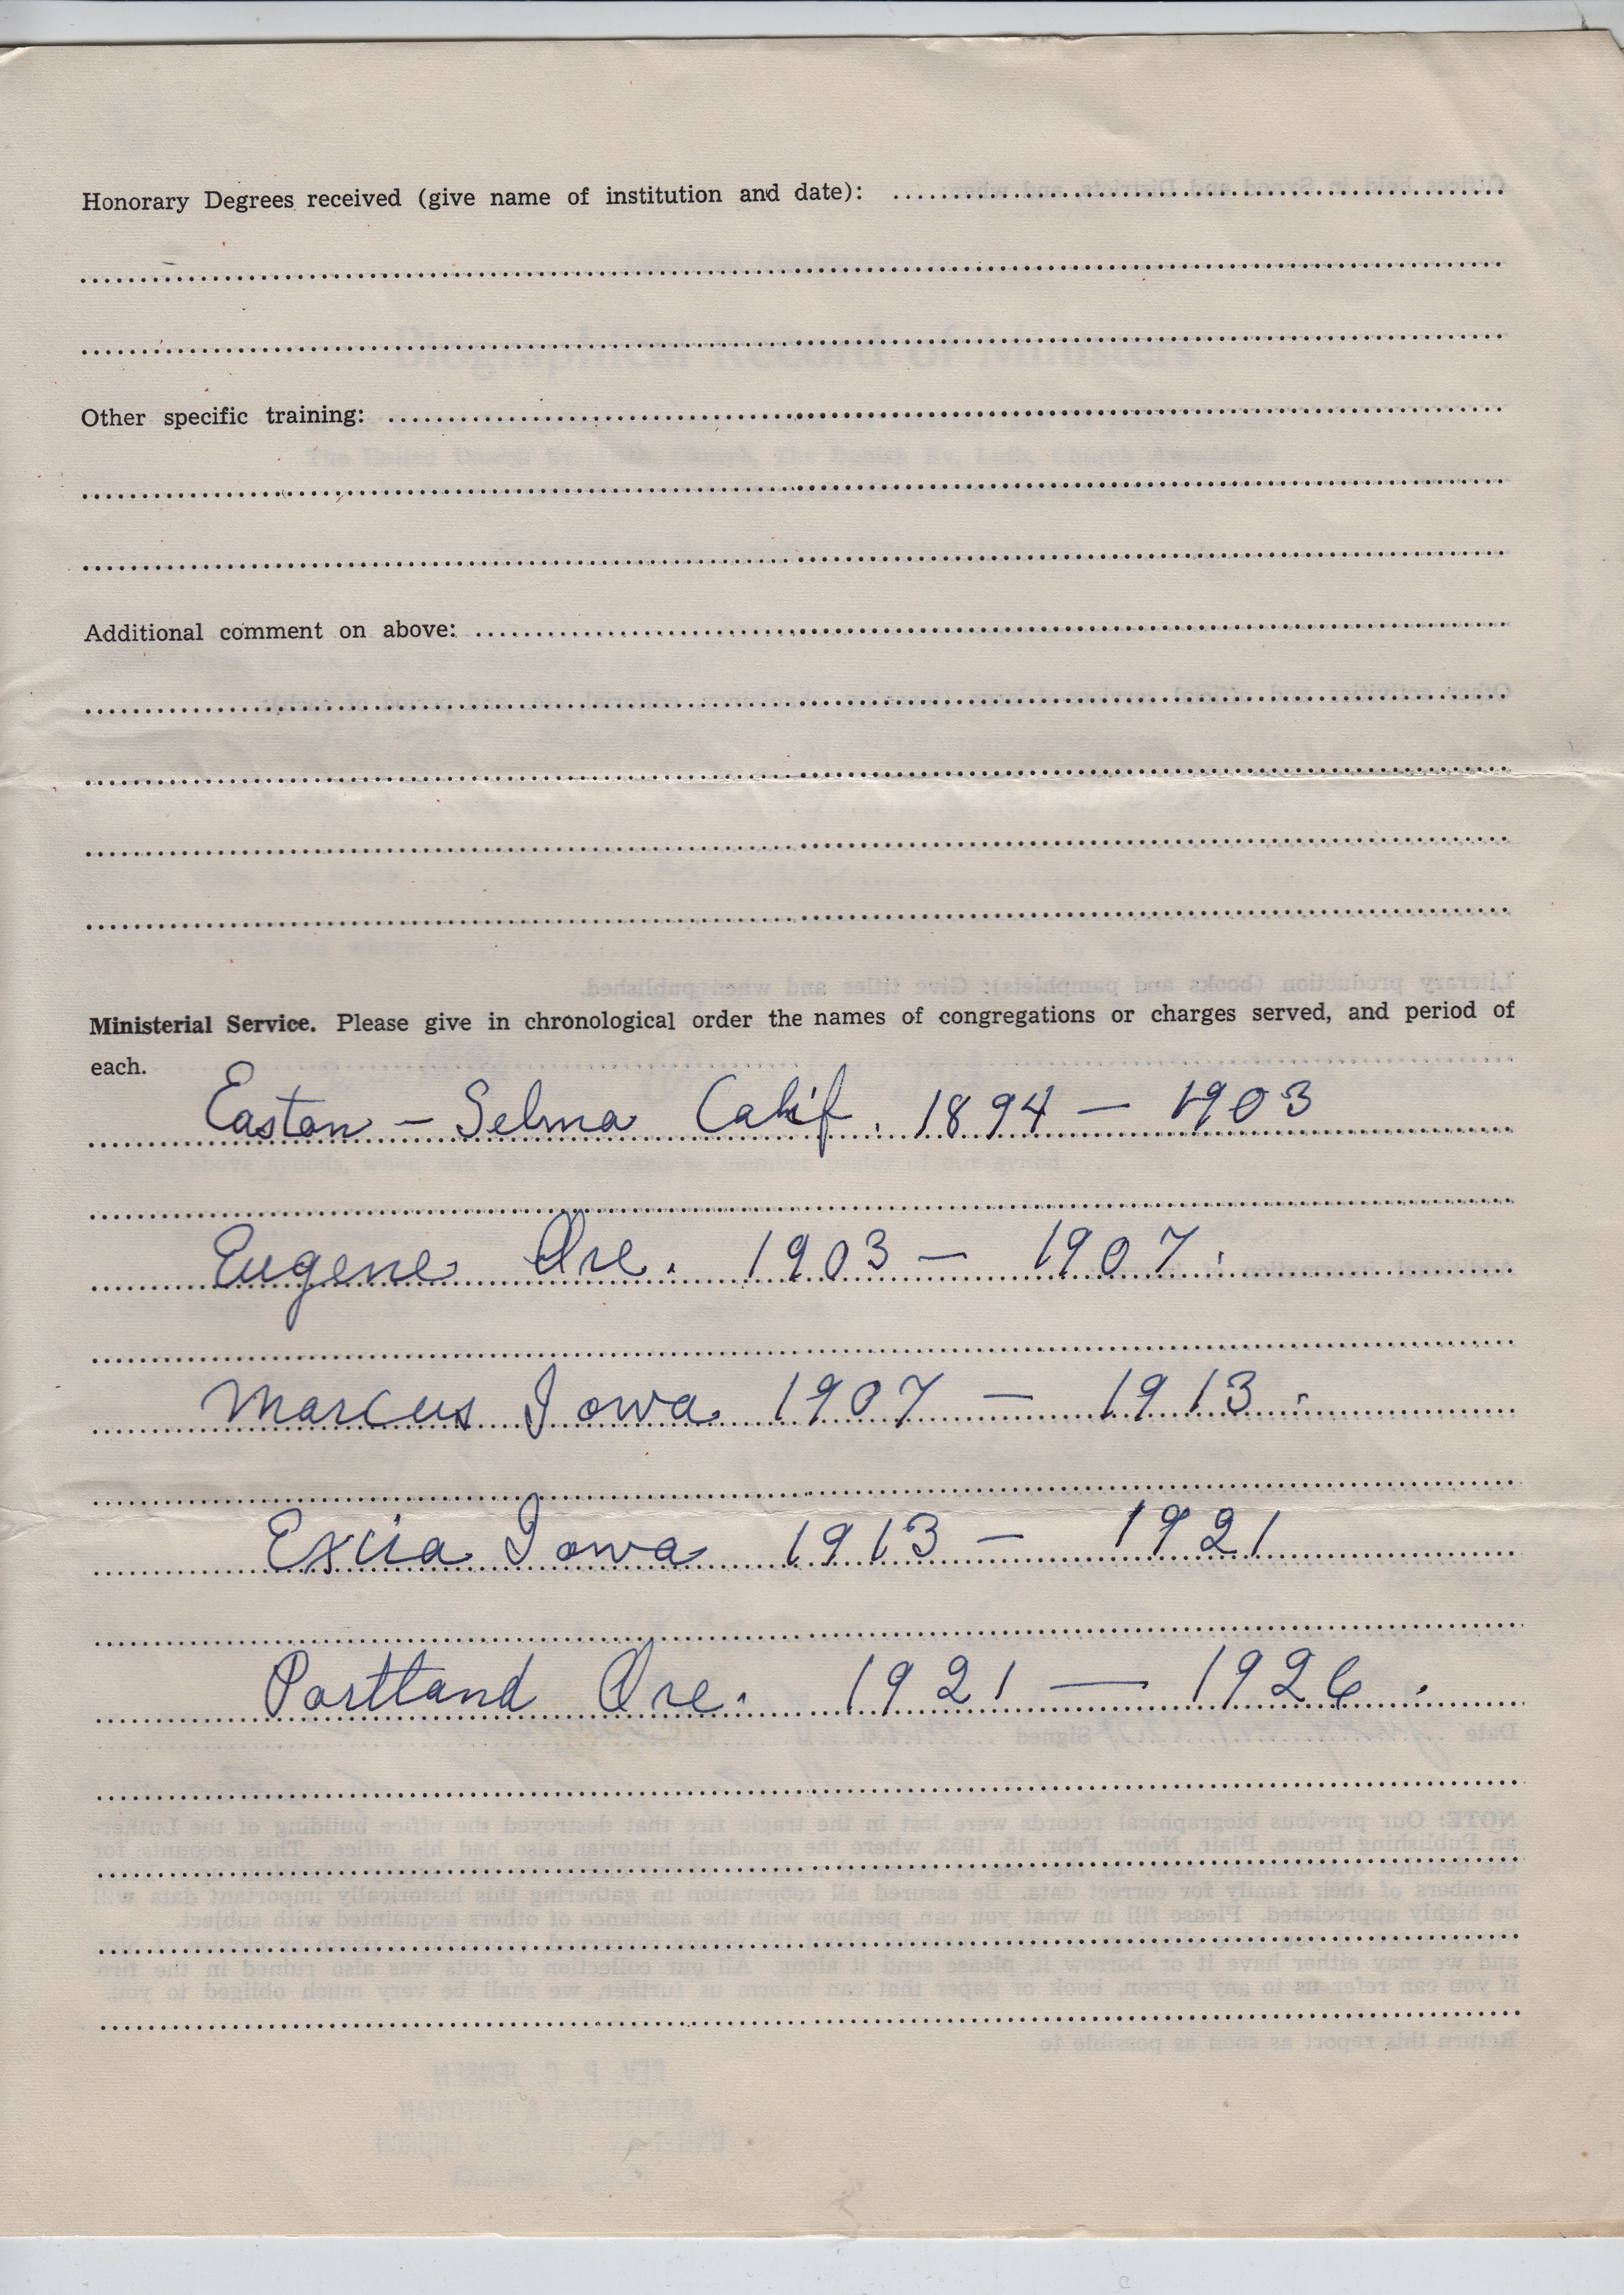 Honorary Degrees received (give name of institution and date):
Other specific training:
Additional comment on above:
Ministerial Service. Please give in chronological order the names of congregations or charges served, and period of
each.
Easton – Selma Calif. 1894 – 1903
Eugene Ore. 1903 – 1907.
Marcus Iowa 1907 – 1913.
Exira Iowa 1913 – 1921
Portland Ore. 1921 — 1926.